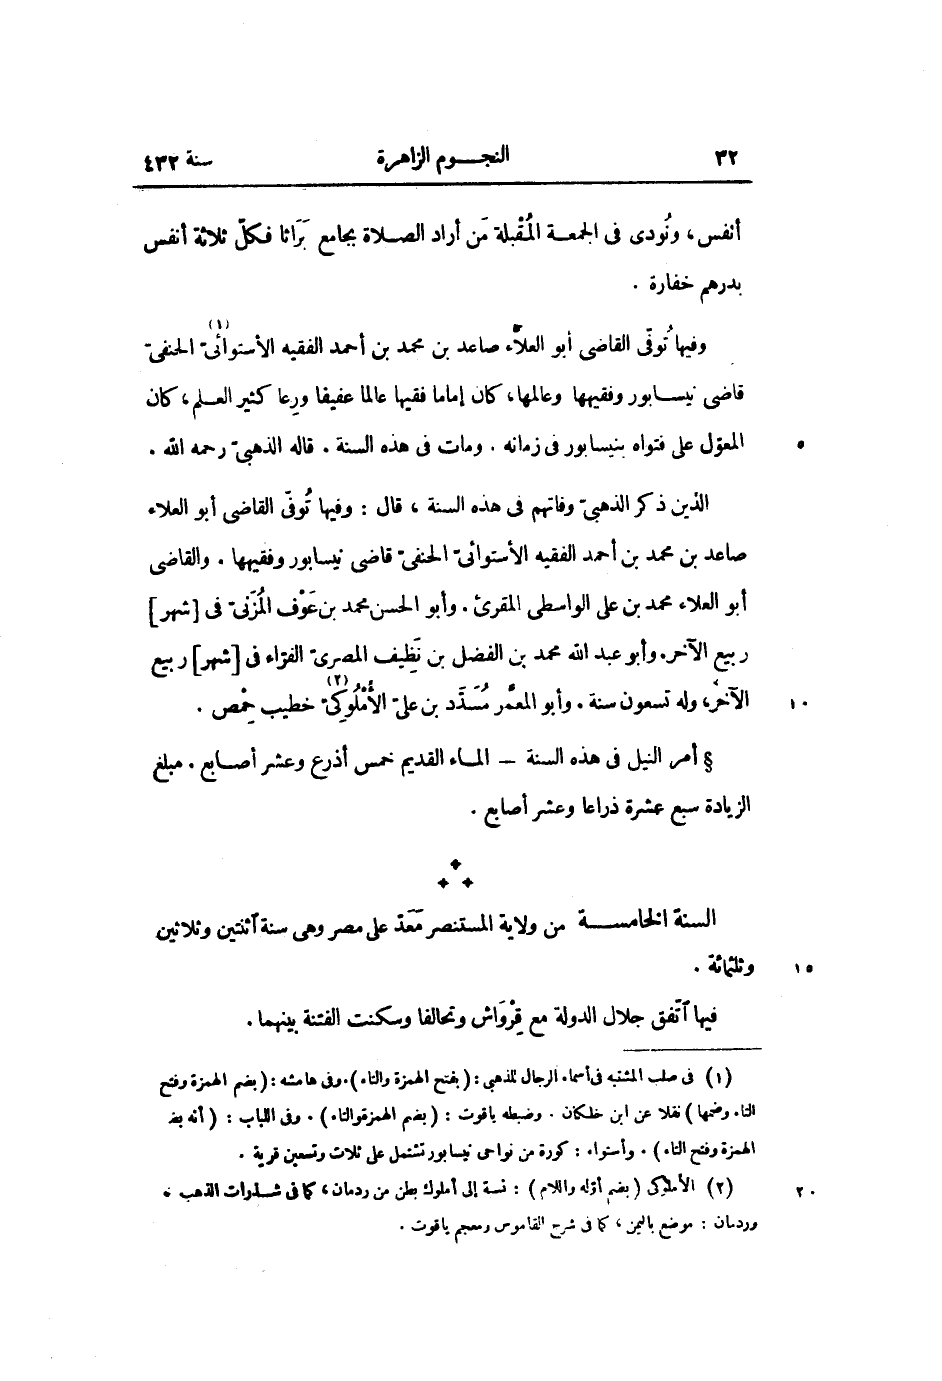 ٣٢ النجوم الزاهرة سنة ٤٣٢
أنفس، ونُودى فى الجمعة المُقْبلة مَن أراد الصلاة بجامع بَرَاثا فكلّ ثلاثة أنفس
بدرهم خفارة .
وفيها تُوفّى القاضى أبو العلاء صاعد بن محمد بن أحمد الفقيه الأستوائىّ(١) الحنفىّ
قاضى نيسابور وفقيهها وعالمها، كان إماما فقيها عالما عفيفا ورِعا كثير العلم، كان
المعوّل على فتواه بنيسابور فى زمانه . ومات فى هذه السنة . قاله الذهبىّ رحمه الله . ٥
الذين ذكر الذهبىّ وفاتهم فى هذه السنة ، قال : وفيها تُوفّى القاضى أبو العلاء
صاعد بن محمد بن أحمد الفقيه الأستوائىّ الحنفىّ قاضى نيسابور وفقيهها . والقاضى
أبو العلاء محمد بن على الواسطى المقرئ . وأبو الحسن محمد بن عَوْف المُزَنىّ فى [شهر]
ربيع الآخر. وأبو عبد الله محمد بن الفضل بن نَظِيف المصرىّ الفرّاء فى [شهر] ربيع
الآخر، وله تسعون سنة . وأبو المعمَّر مُسَدَّد بن علىّ الأُمْلُوكىّ(٢) خطيب حِمْص . ١٠
§ أمر النيل فى هذه السنة — الماء القديم خمس أذرع وعشر أصابع . مبلغ
الزيادة سبع عشرة ذراعا وعشر أصابع .
السنة الخامسة من ولاية المستنصر مَعَدّ على مصر وهى سنة آثنتين وثلاثين
وثلثمائة . ١٥
فيها آتّفق جلال الدولة مع قِرْوَاش وتحالفا وسكنت الفتنة بينهما .
(١) فى صلب المشتبه فى أسماء الرجال للذهبى : (بفتح الهمزة والتاء). وفى هامشه : (بضم الهمزة وفتح
التاء وضمها) نقلا عن ابن خلكان . وضبطه ياقوت : (بضم الهمزة والتاء) . وفى اللباب : (أنه بضم
الهمزة وفتح التاء) . وأستواء : كورة من نواحى نيسابور تشتمل على ثلاث وتسعين قرية .
(٢) الأملوكى (بضم أوّله واللام) : نسبة إلى أملوك بطن من ردمان ، كما فى شذرات الذهب . ٢٠
وردمان : موضع باليمن ، كما فى شرح القاموس ومعجم ياقوت .